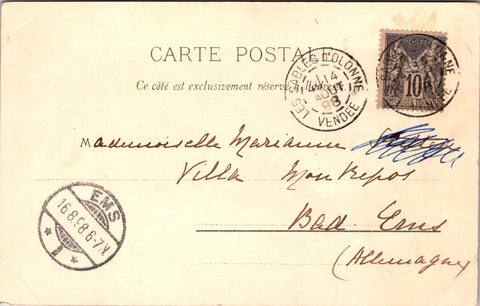 CARTE POSTALE
Ce côté est exclusivement réservé à l'adresse
LES SABLES D'OLONNE
14
AOUT
98
VENDÉE
10
Mademoiselle Marianne
Villa Mon Repos
Bad Ems
(Allemagne)
EMS
16.8.98.6-7N